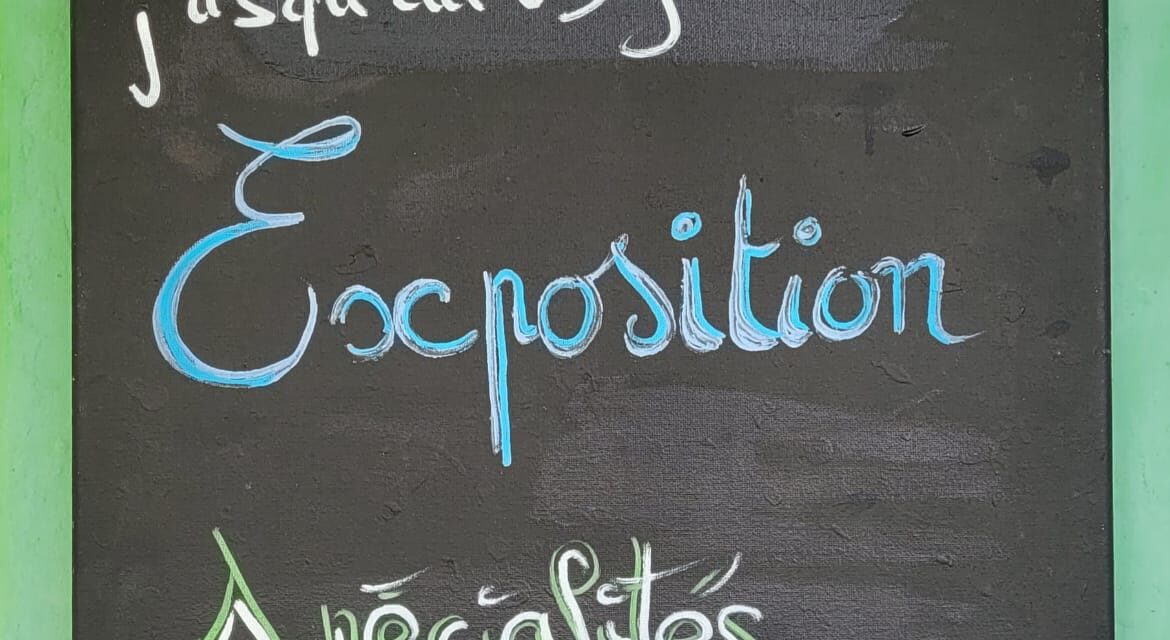 jusqu'au
Exposition
Spécialités